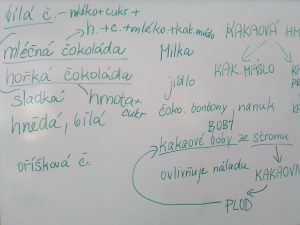 bílá č. - mléko + cukr +
h. + c. + mléko + kak. máslo
mléčná čokoláda
Milka
hořká čokoláda
sladká
hmota +
cukr
hnědá, bílá
oříšková č.
KAKAOVÁ HM
KAK. MÁSLO
jídlo
čoko. bonbony, nanuk
BOBY
kakaové boby ze stromu
ovlivňuje náladu
KAKAOVN
PLOD